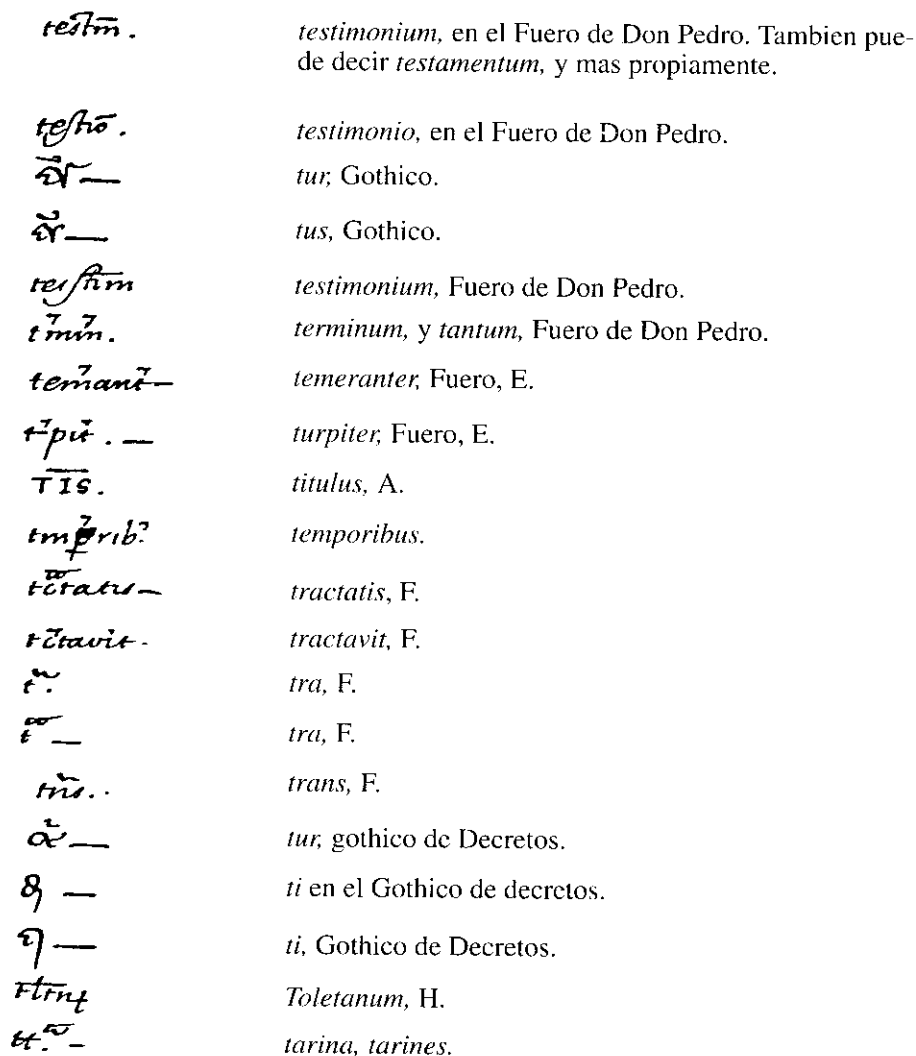 testm̄. testimonium, en el Fuero de Don Pedro. Tambien pue-
de decir testamentum, y mas propiamente.
testiō. testimonio, en el Fuero de Don Pedro.
tur, Gothico.
tus, Gothico.
testim testimonium, Fuero de Don Pedro.
tmin. terminum, y tantum, Fuero de Don Pedro.
temant— temeranter, Fuero, E.
tpit. — turpiter, Fuero, E.
TIS. titulus, A.
temporibus.
tctatis— tractatis, F.
tctavit. tractavit, F.
t. tra, F.
t — tra, F.
tns.. trans, F.
tur, gothico de Decretos.
ti en el Gothico de decretos.
ti, Gothico de Decretos.
Toletanum, H.
tt. - tarina, tarines.